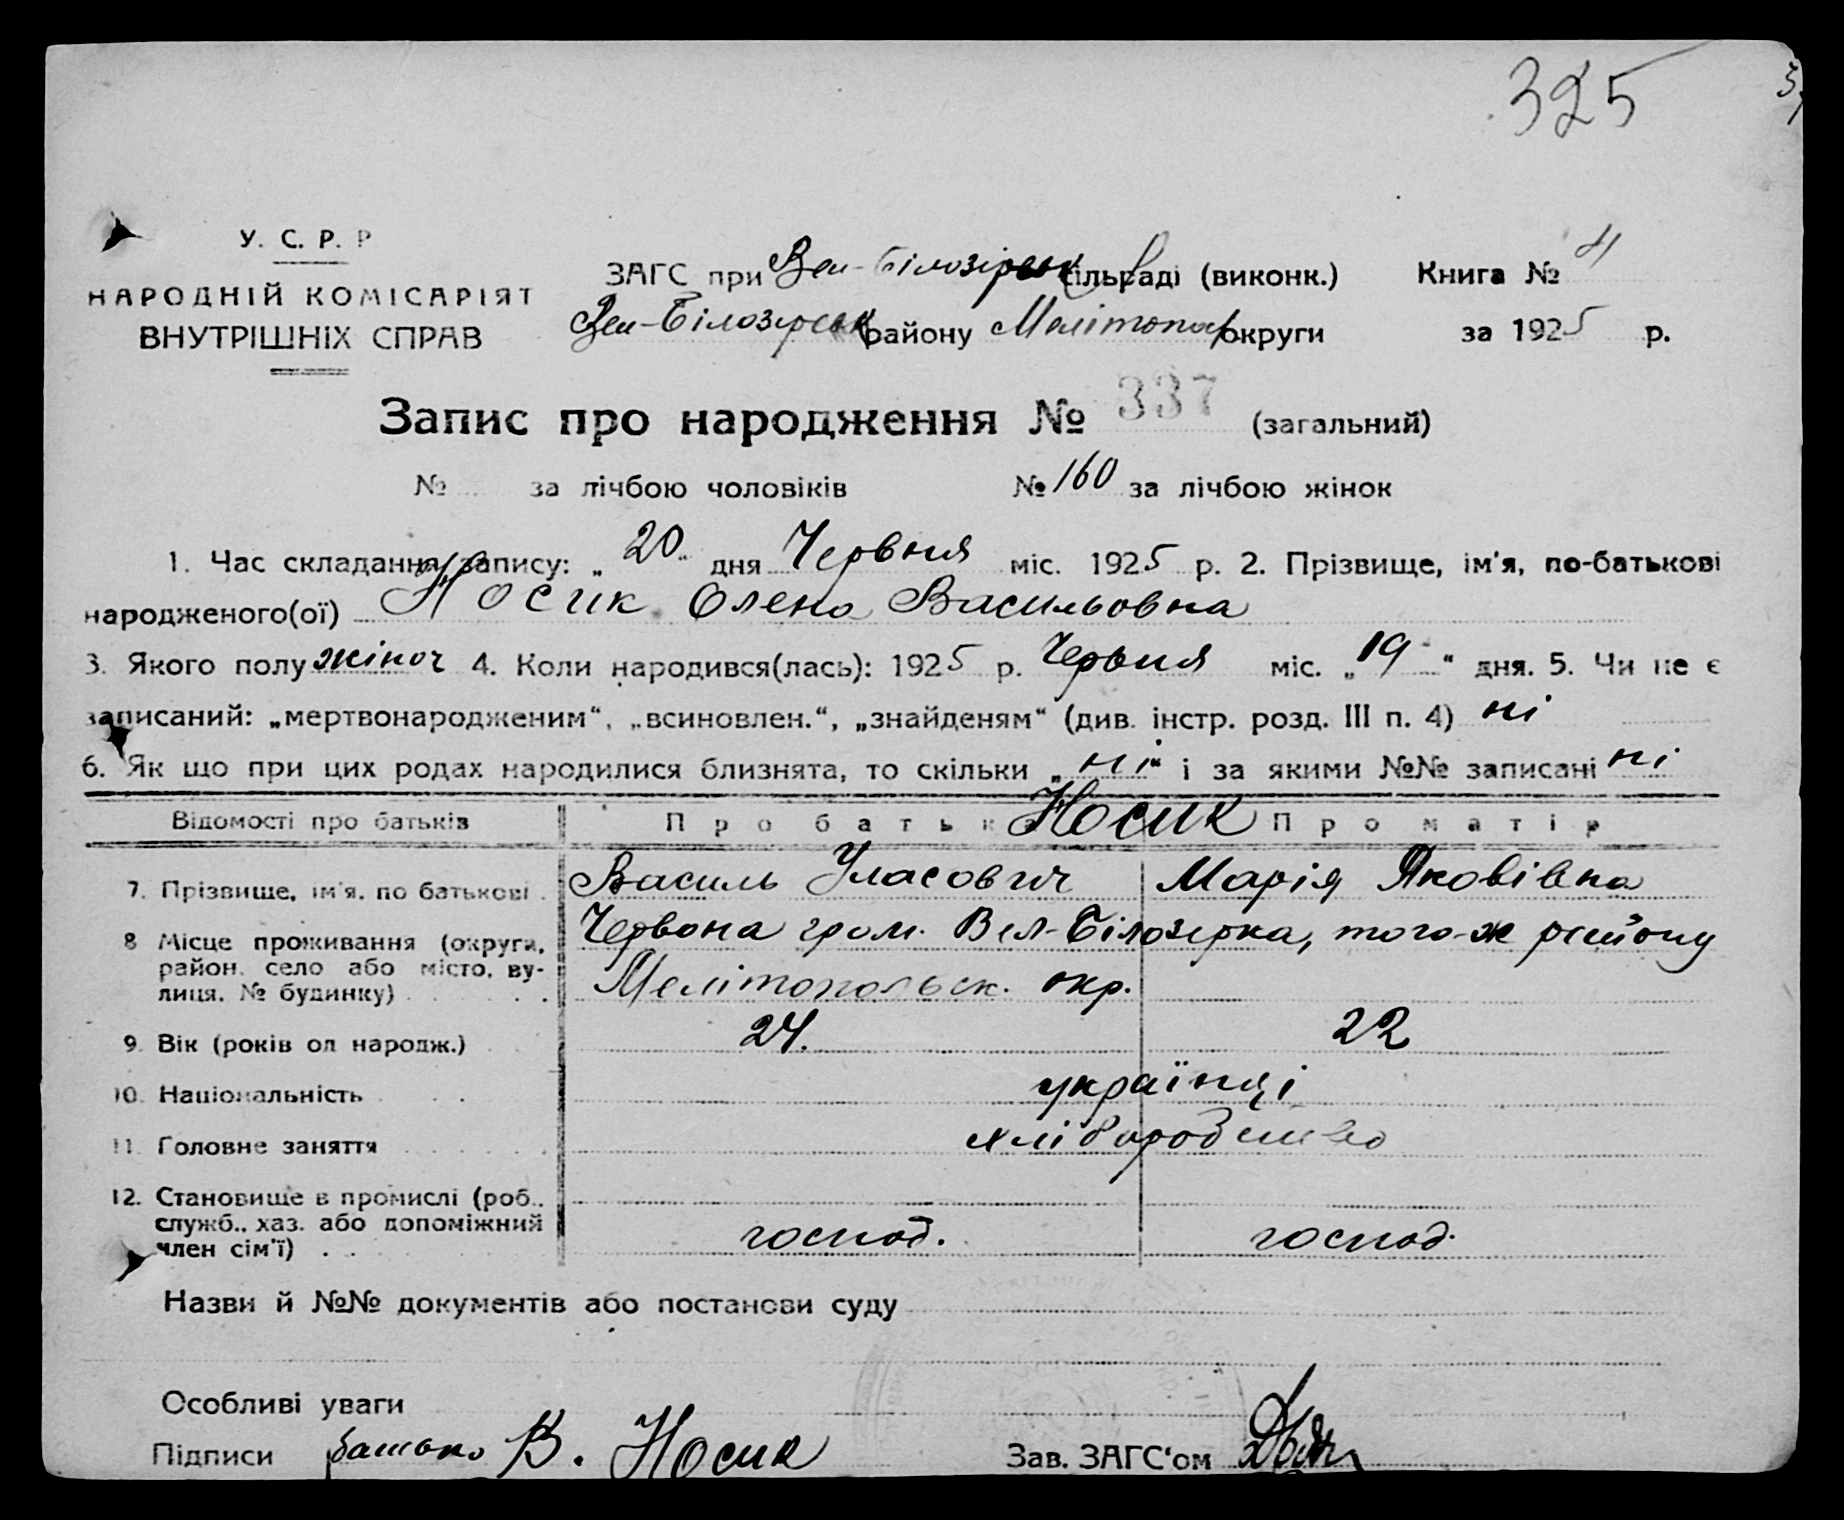 325
У. С. Р. Р
НАРОДНІЙ КОМІСАРІЯТ
ВНУТРІШНІХ СПРАВ
ЗАГС при Вел-Білозірськ сільраді (виконк.) Книга № 4
Вел-Білозірськ району Мелітопол округи за 1925 р.
Запис про народження № 337 (загальний)
№ за лічбою чоловіків № 160 за лічбою жінок
1. Час складання запису: „20" дня Червня міс. 1925 р. 2. Прізвище, ім'я, по-батькові
народженого(ої) Носик Олена Васильовна
3. Якого полу жіноч 4. Коли народився(лась): 1925 р. Червня міс. „19" дня. 5. Чи не є
записаний: „мертвонародженим", „всиновлен.", „знайденям" (див. інстр. розд. III п. 4) ні
6. Як що при цих родах народилися близнята, то скільки „ні" і за якими №№ записані ні
Носик
Відомості про батьків Про батька Про матір
7. Прізвище, ім'я, по батькові Василь Уласович Марія Яковівна
8 Місце проживання (округи, Червона гром. Вел-Білозірка, того-ж району
район, село або місто, ву- Мелітопольск. окр.
лиця, № будинку)
9. Вік (років од народж.) 24. 22
10. Національність українці
11. Головне заняття хліборобство
12. Становище в промислі (роб.,
служб., хаз. або допоміжний господ. господ.
член сім'ї)
Назви й №№ документів або постанови суду
Особливі уваги
Підписи батько В. Носик Зав. ЗАГС'ом